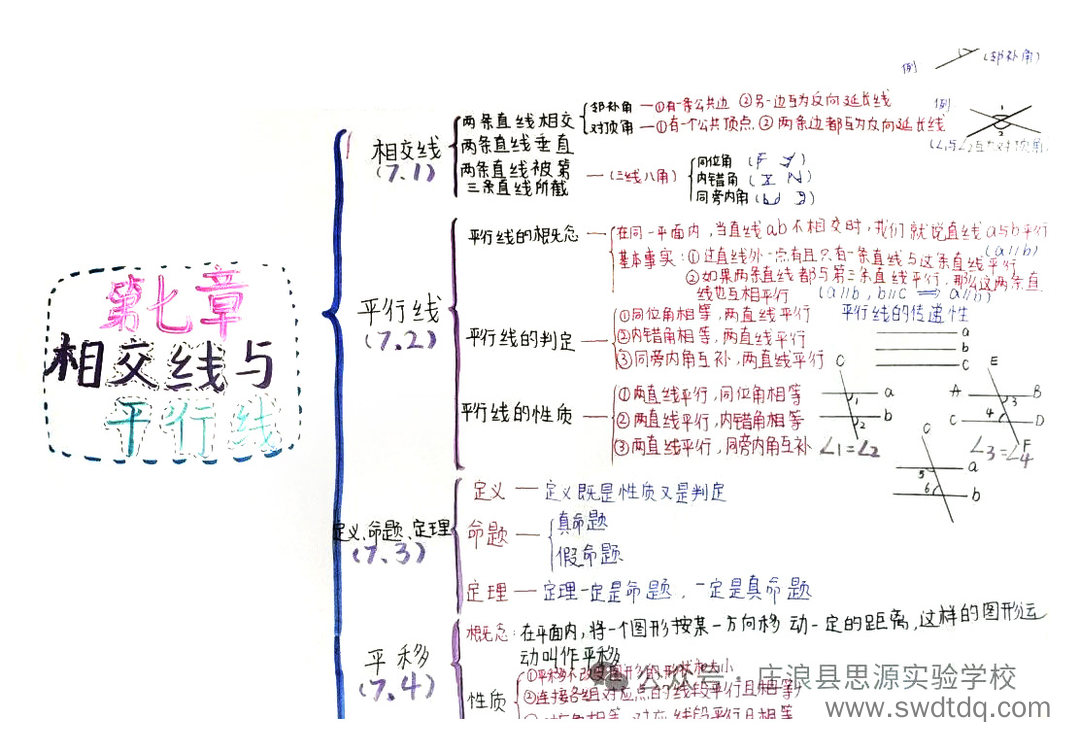 例 (邻补角)
第七章
相交线与
平行线
相交线
(7.1)
两条直线相交
邻补角 — ①有一条公共边 ②另一边互为反向延长线
对顶角 — ①有一个公共顶点 ②两条边都互为反向延长线
例
1
2
(∠1与∠2互为对顶角)
两条直线垂直
两条直线被第
三条直线所截
(三线八角)
同位角 (F
内错角 (Z N)
同旁内角
平行线
(7.2)
平行线的概念
在同一平面内,当直线ab不相交时,我们就说直线a与b平行
(a//b)
基本事实:①过直线外一点有且只有一条直线与这条直线平行
②如果两条直线都与第三条直线平行,那么这两条直
线也互相平行 (a//b,b//c ⟹ a//b)
平行线的传递性
a
b
c
平行线的判定
①同位角相等,两直线平行
②内错角相等,两直线平行
③同旁内角互补,两直线平行
平行线的性质
①两直线平行,同位角相等
②两直线平行,内错角相等
③两直线平行,同旁内角互补
C
1
a
2
b
∠1=∠2
E
A 3 B
C 4 D
F
∠3=∠4
C
5 a
6 b
定义、命题、定理
(7.3)
定义 — 定义既是性质又是判定
命题
真命题
假命题
定理 — 定理一定是命题,一定是真命题
平移
(7.4)
概念:在平面内,将一个图形按某一方向移动一定的距离,这样的图形运
动叫作平移
性质
①平移不改变图形的形状和大小
②连接各组对应点的线段平行且相等
公众号·庄浪县思源实验学校
www.swdtdq.com